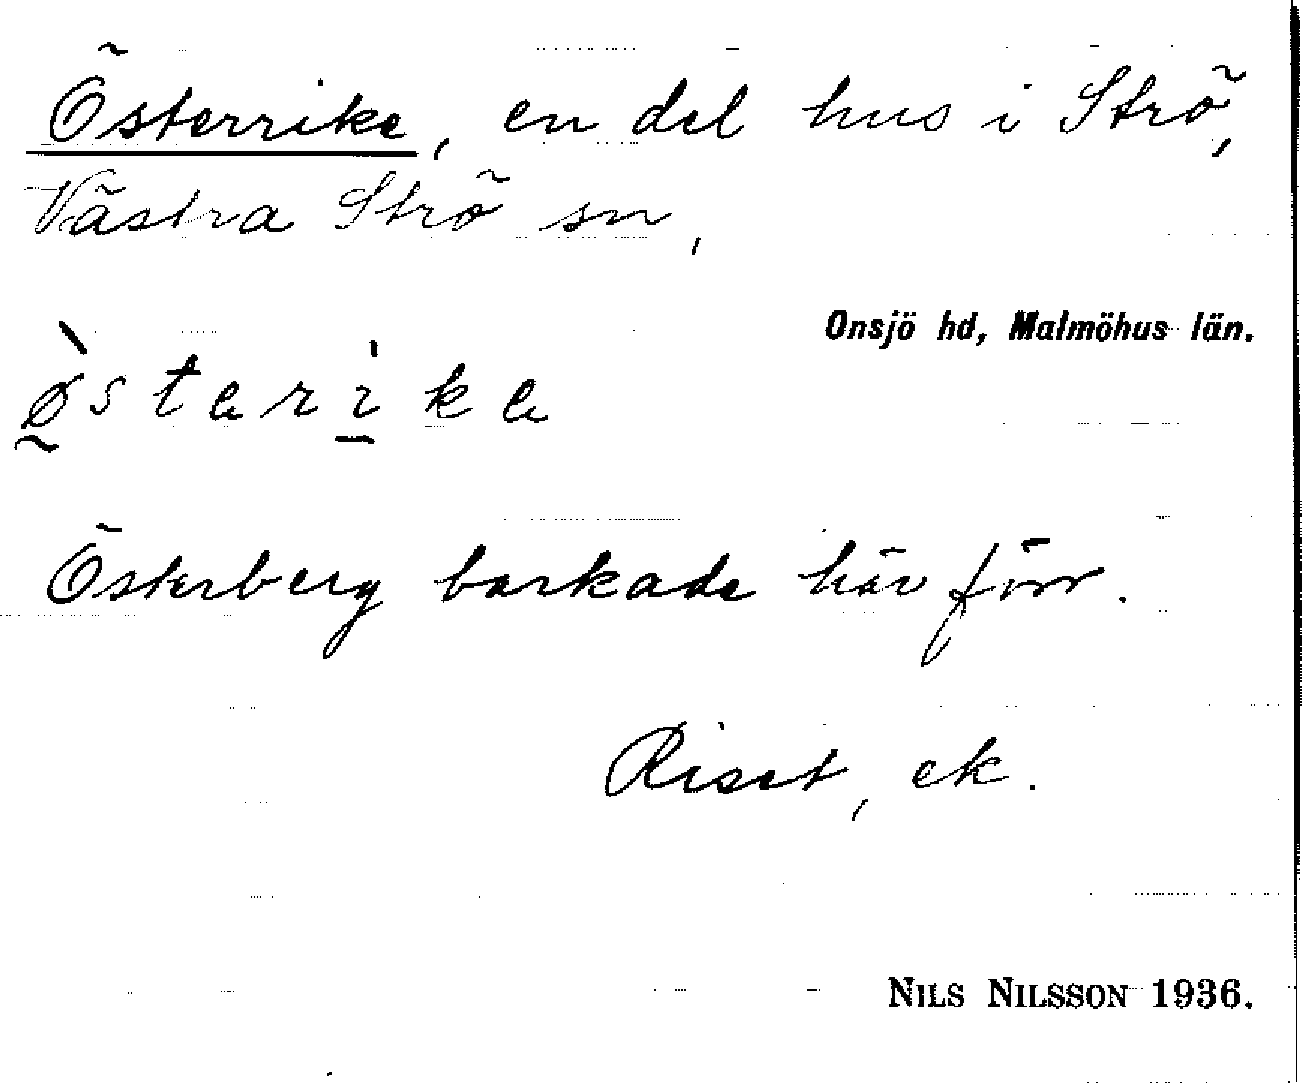 Österrike, en del hus i Strö,
Västra Strö sn,
Onsjö hd, Malmöhus län.
ø̀sterìke
Österberg barkade här förr.
Riset, ek.
NILS NILSSON 1936.